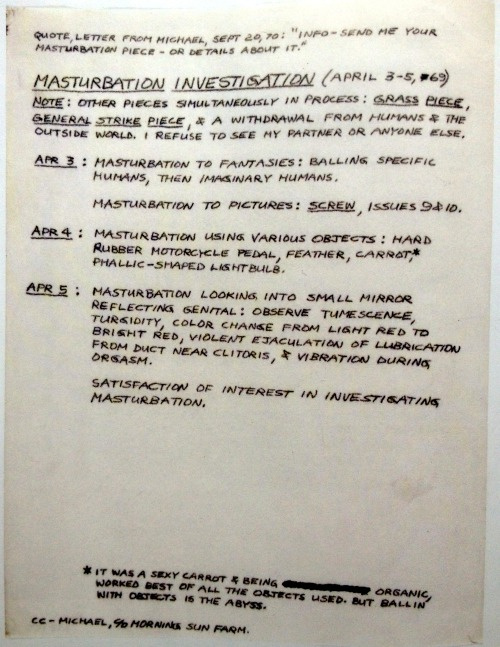 QUOTE, LETTER FROM MICHAEL, SEPT 20, 70: "INFO-SEND ME YOUR
MASTURBATION PIECE - OR DETAILS ABOUT IT."
MASTURBATION INVESTIGATION (APRIL 3-5, 69)
NOTE: OTHER PIECES SIMULTANEOUSLY IN PROCESS: GRASS PIECE,
GENERAL STRIKE PIECE, & A WITHDRAWAL FROM HUMANS & THE
OUTSIDE WORLD. I REFUSE TO SEE MY PARTNER OR ANYONE ELSE.
APR 3: MASTURBATION TO FANTASIES: BALLING SPECIFIC
HUMANS, THEN IMAGINARY HUMANS.
MASTURBATION TO PICTURES: SCREW, ISSUES 9 & 10.
APR 4: MASTURBATION USING VARIOUS OBJECTS: HARD
RUBBER MOTORCYCLE PEDAL, FEATHER, CARROT,*
PHALLIC-SHAPED LIGHTBULB.
APR 5: MASTURBATION LOOKING INTO SMALL MIRROR
REFLECTING GENITAL: OBSERVE TUMESCENCE,
TURGIDITY, COLOR CHANGE FROM LIGHT RED TO
BRIGHT RED, VIOLENT EJACULATION OF LUBRICATION
FROM DUCT NEAR CLITORIS, & VIBRATION DURING
ORGASM.
SATISFACTION OF INTEREST IN INVESTIGATING
MASTURBATION.
* IT WAS A SEXY CARROT & BEING ORGANIC,
WORKED BEST OF ALL THE OBJECTS USED. BUT BALLIN
WITH OBJECTS IS THE ABYSS.
CC - MICHAEL, c/o MORNING SUN FARM.